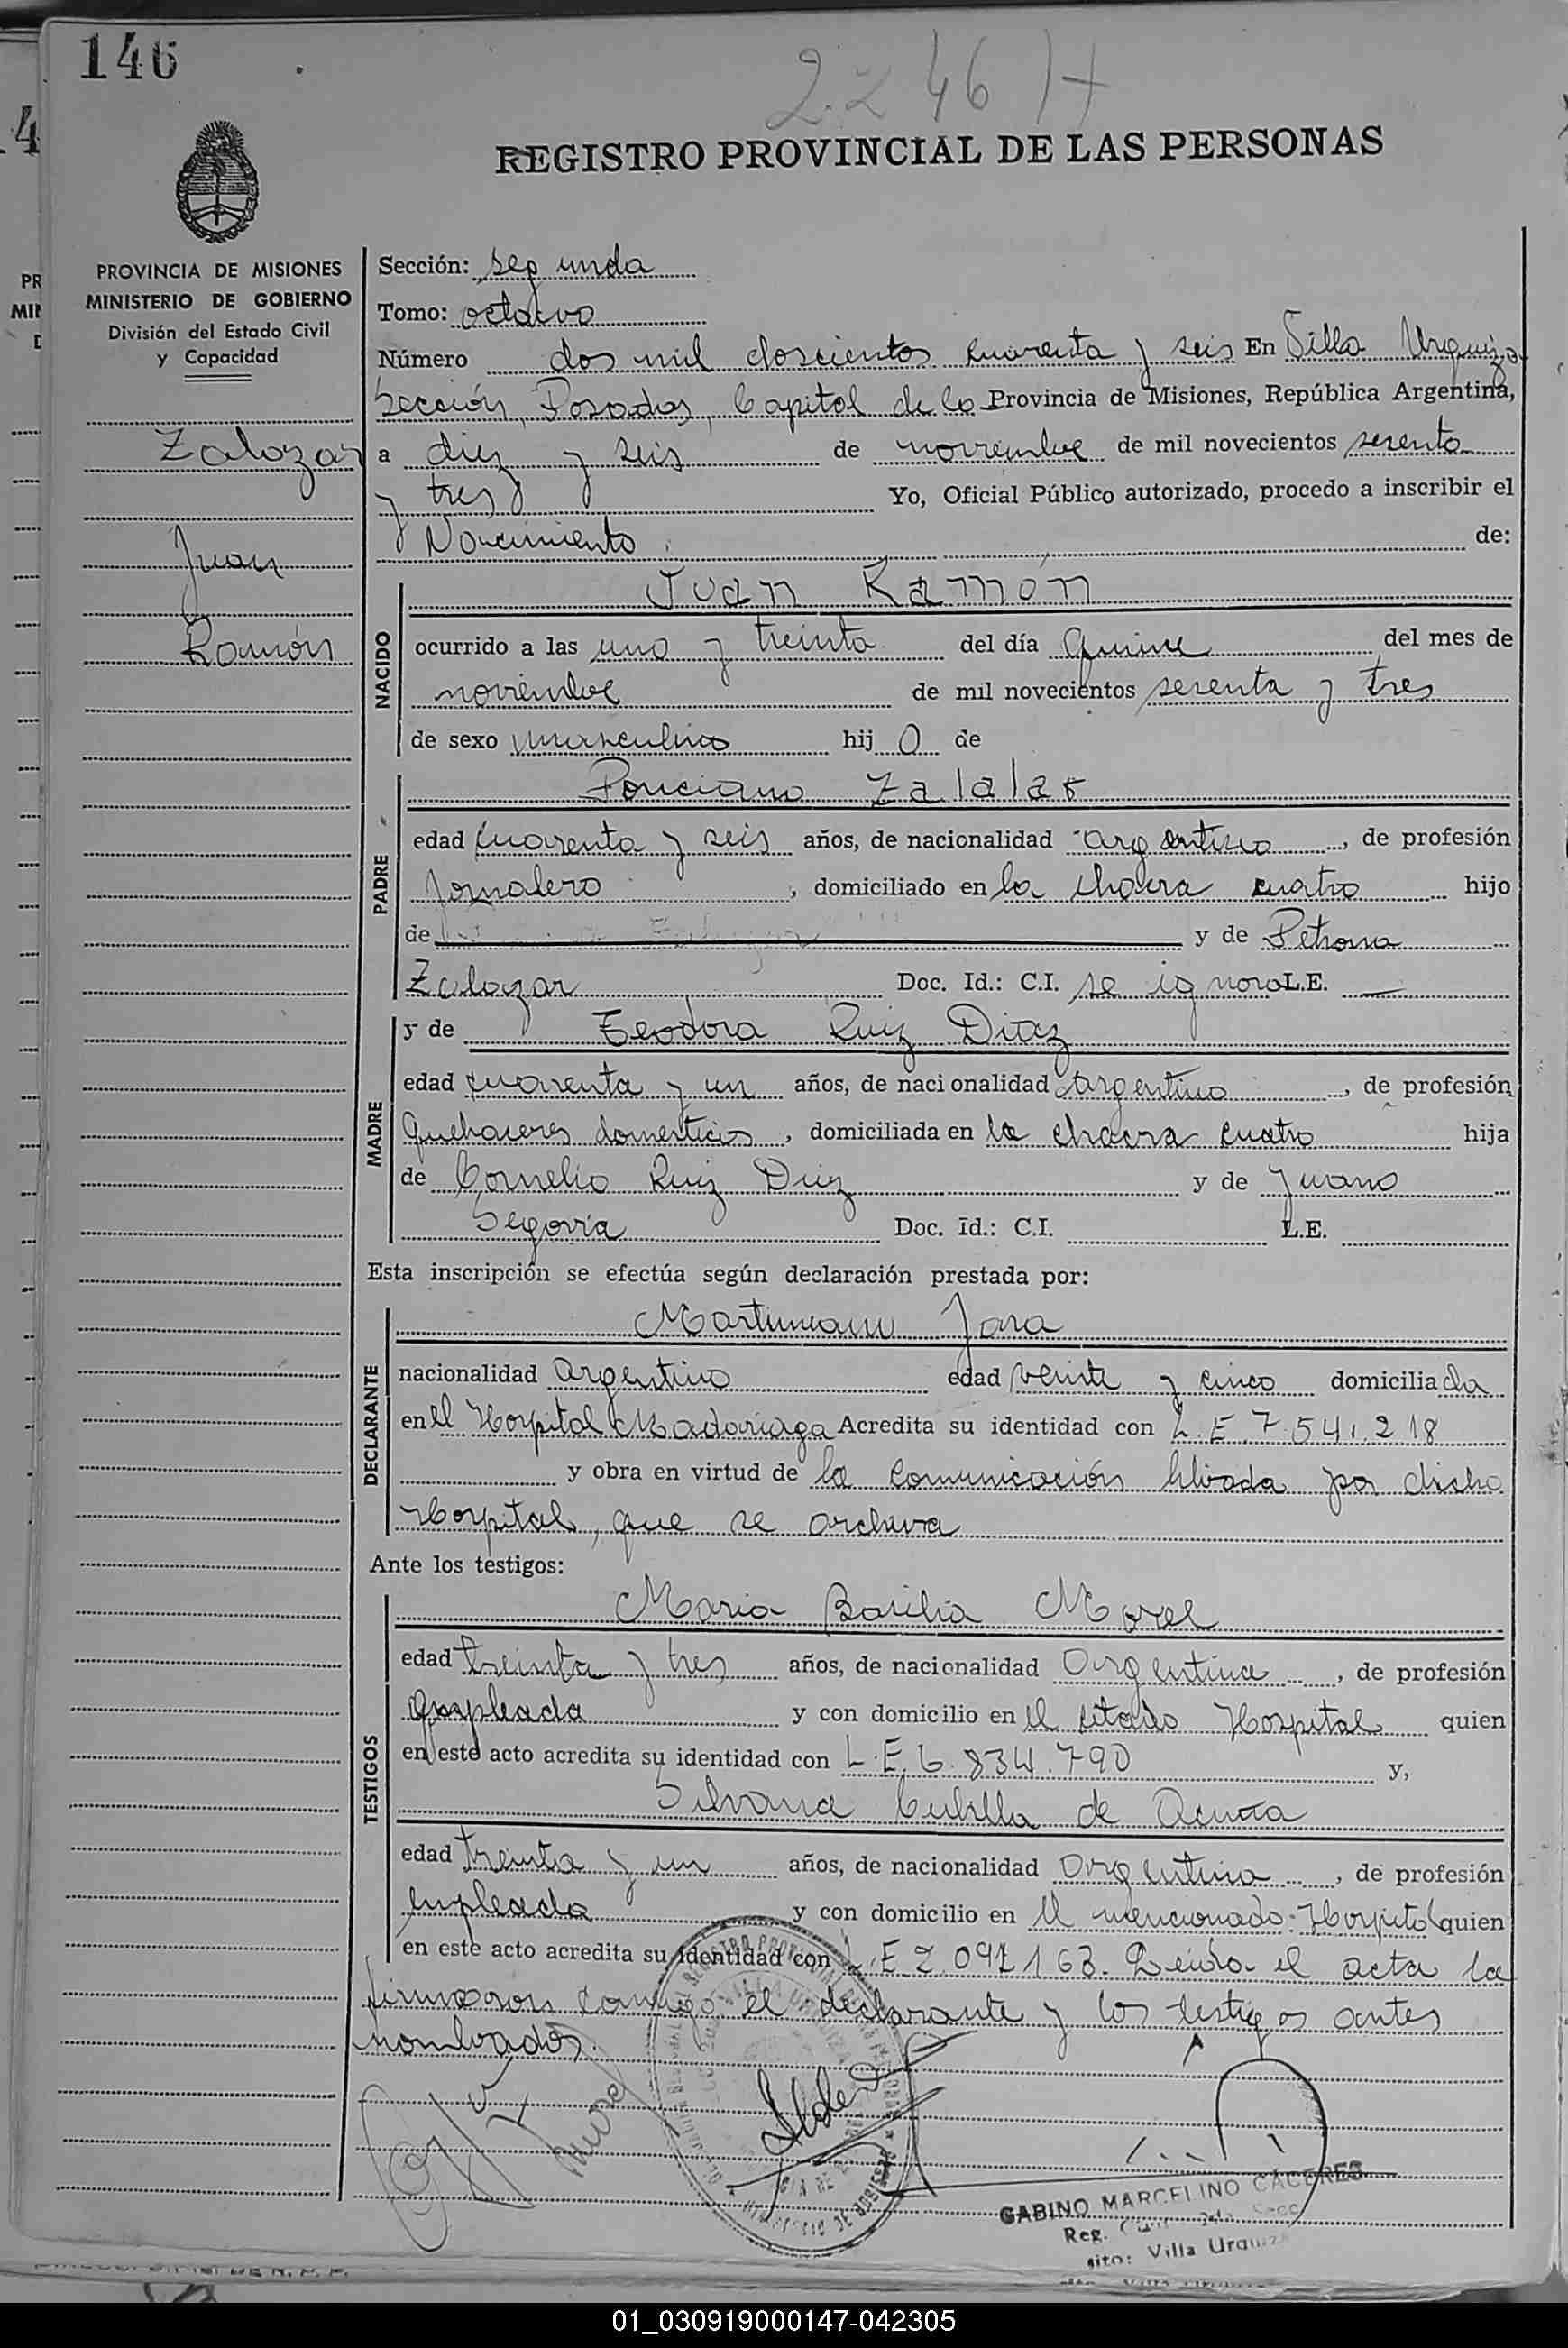 146
2246 H
REGISTRO PROVINCIAL DE LAS PERSONAS
PROVINCIA DE MISIONES
MINISTERIO DE GOBIERNO
División del Estado Civil
y Capacidad
Zalazar
Juan
Ramón
Sección: segunda
Tomo: octavo
Número dos mil doscientos cuarenta y seis En Villa Urquiza
Sección, Posadas, Capital de la Provincia de Misiones, República Argentina,
a diez y seis de noviembre de mil novecientos sesenta
y tres Yo, Oficial Público autorizado, procedo a inscribir el
Nacimiento de:
NACIDO
Juan Ramón
ocurrido a las uno y treinta del día Quince del mes de
noviembre de mil novecientos sesenta y tres
de sexo masculino hij o de
PADRE
Ponciano
edad cuarenta y seis años, de nacionalidad argentino, de profesión
Jornalero, domiciliado en la chacra cuatro hijo
de y de Petrona
Zalazar Doc. Id.: C.I. se ignora L.E. —
MADRE
y de Teodora Ruiz Diaz
edad cuarenta y un años, de nacionalidad argentina, de profesión
Quehaceres domesticos, domiciliada en la chacra cuatro hija
de Cornelio Ruiz Diaz y de Juana
Segovia Doc. Id.: C.I. L.E.
Esta inscripción se efectúa según declaración prestada por:
DECLARANTE
Martiniano Jara
nacionalidad argentino edad veinte y cinco domicilia do
en el Hospital Madariaga Acredita su identidad con L.E. 7.541.218
y obra en virtud de la comunicación librada por dicho
Hospital, que se archiva
Ante los testigos:
TESTIGOS
Maria Basilia Morel
edad treinta y tres años, de nacionalidad Argentina, de profesión
Empleada y con domicilio en el citado Hospital quien
en este acto acredita su identidad con L.E. 6.834.790 y,
Silvana Cubilla de Acuña
edad treinta y un años, de nacionalidad Argentina, de profesión
empleada y con domicilio en el mencionado Hospital quien
en este acto acredita su identidad con L.E. 2.091163. Leida el acta la
firmaron conmigo el declarante y los testigos antes
nombrados.
GABINO MARCELINO CACERES
Reg. Secc
sito: Villa Urquiza
01_030919000147-042305